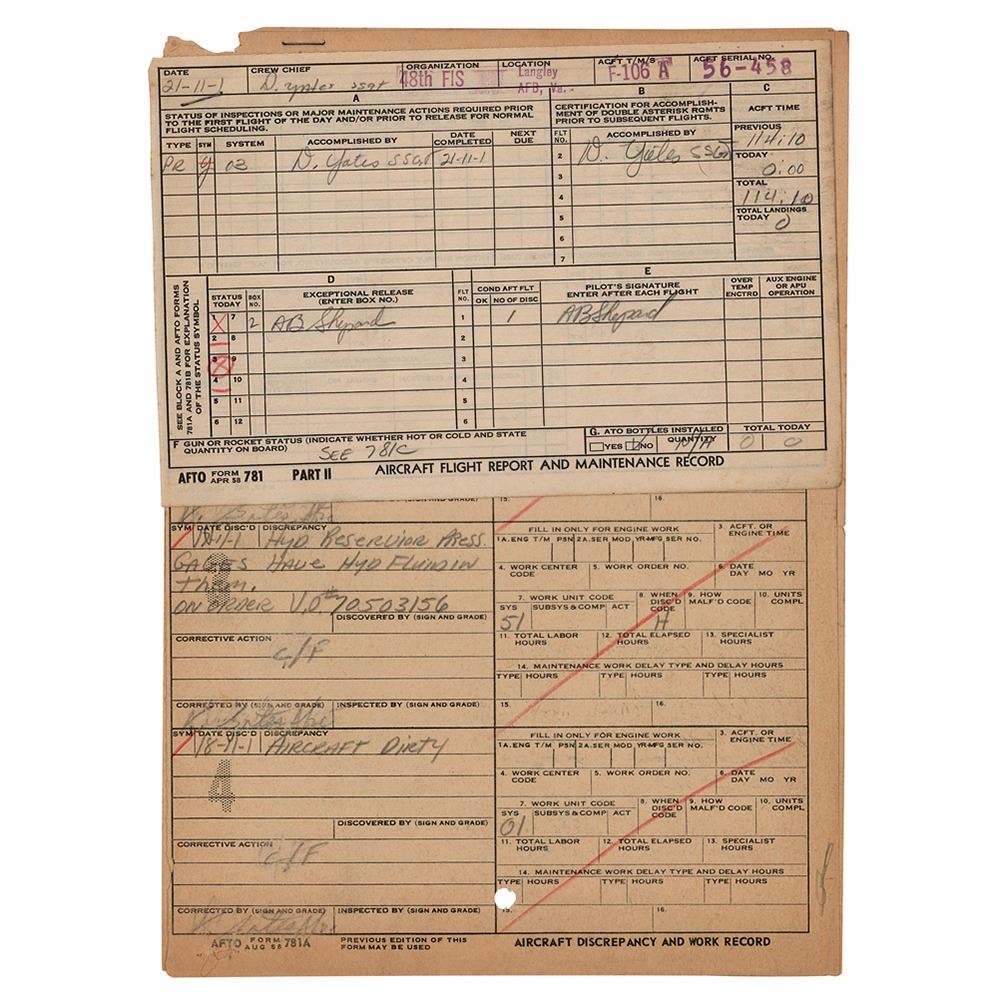 DATE CREW CHIEF ORGANIZATION LOCATION ACFT T/M/S ACFT SERIAL NO.
21-11-1 D. Yates SSGT 48th FIS Langley AFB, Va. F-106 A 56-458
A B C
STATUS OF INSPECTIONS OR MAJOR MAINTENANCE ACTIONS REQUIRED PRIOR
TO THE FIRST FLIGHT OF THE DAY AND/OR PRIOR TO RELEASE FOR NORMAL
FLIGHT SCHEDULING.
CERTIFICATION FOR ACCOMPLISH-
MENT OF DOUBLE ASTERISK RQMTS
PRIOR TO SUBSEQUENT FLIGHTS.
ACFT TIME
TYPE SYM SYSTEM ACCOMPLISHED BY DATE COMPLETED NEXT DUE FLT NO. ACCOMPLISHED BY
PREVIOUS
114:10
PR 03 D. Yates SSGT 21-11-1 2 D. Yates SSGT
TODAY
0:00
3
TOTAL
114:10
4
TOTAL LANDINGS
TODAY 0
5
6
7
D E
SEE BLOCK A AND AFTO FORMS
781A AND 781B FOR EXPLANATION
OF THE STATUS SYMBOL
STATUS TODAY BOX NO. EXCEPTIONAL RELEASE
(ENTER BOX NO.)
FLT NO. COND AFT FLT
OK NO OF DISC
PILOT'S SIGNATURE
ENTER AFTER EACH FLIGHT
OVER TEMP ENCTRD
AUX ENGINE OR APU OPERATION
1 7 2 AB Shepard 1 1 AB Shepard
2 8 2
3 9 3
4 10 4
5 11 5
6 12 6
F GUN OR ROCKET STATUS (INDICATE WHETHER HOT OR COLD AND STATE
QUANTITY ON BOARD) SEE 781C
G. ATO BOTTLES INSTALLED TOTAL TODAY
YES NO QUANTITY N/A 0 0
AFTO FORM APR 58 781 PART II AIRCRAFT FLIGHT REPORT AND MAINTENANCE RECORD
(SIGN AND GRADE) 15. 16.
SYM DATE DISC'D DISCREPANCY FILL IN ONLY FOR ENGINE WORK 3. ACFT. OR ENGINE TIME
Hyd Reservior Press.
1A. ENG T/M PSN 2A. SER MOD YR-MFG SER NO.
GAGES HAVE HYD FLUID IN
Them.
4. WORK CENTER CODE 5. WORK ORDER NO. 6. DATE DAY MO YR
ON ORDER V.O# 70503156
7. WORK UNIT CODE 8. WHEN DISC'D CODE 9. HOW MALF'D CODE 10. UNITS COMPL
SYS SUBSYS & COMP ACT
51 H
DISCOVERED BY (SIGN AND GRADE)
CORRECTIVE ACTION
C/F
11. TOTAL LABOR HOURS 12. TOTAL ELAPSED HOURS 13. SPECIALIST HOURS
14. MAINTENANCE WORK DELAY TYPE AND DELAY HOURS
TYPE HOURS TYPE HOURS TYPE HOURS TYPE HOURS
CORRECTED BY (SIGN AND GRADE) INSPECTED BY (SIGN AND GRADE) 15. 16.
SYM DATE DISC'D DISCREPANCY FILL IN ONLY FOR ENGINE WORK 3. ACFT. OR ENGINE TIME
18-11-1 AIRCRAFT DIRTY
1A. ENG T/M PSN 2A. SER MOD YR-MFG SER NO.
4
4. WORK CENTER CODE 5. WORK ORDER NO. 6. DATE DAY MO YR
7. WORK UNIT CODE 8. WHEN DISC'D CODE 9. HOW MALF'D CODE 10. UNITS COMPL
SYS SUBSYS & COMP ACT
01
DISCOVERED BY (SIGN AND GRADE)
CORRECTIVE ACTION
C/F
11. TOTAL LABOR HOURS 12. TOTAL ELAPSED HOURS 13. SPECIALIST HOURS
14. MAINTENANCE WORK DELAY TYPE AND DELAY HOURS
TYPE HOURS TYPE HOURS TYPE HOURS TYPE HOURS
CORRECTED BY (SIGN AND GRADE) INSPECTED BY (SIGN AND GRADE) 15. 16.
AFTO FORM AUG 58 781A PREVIOUS EDITION OF THIS
FORM MAY BE USED
AIRCRAFT DISCREPANCY AND WORK RECORD